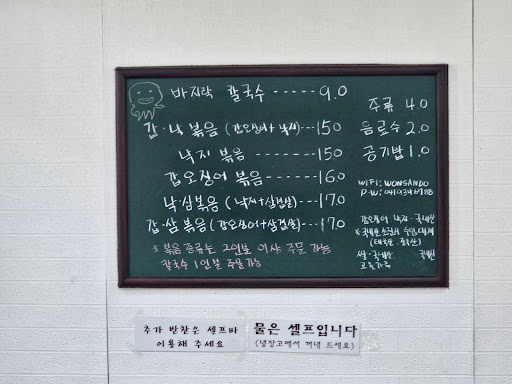 바지락 칼국수 ----- 9.0
갑·낙 볶음 (갑오징어+낙지)---150
낙지 볶음 ------- 150
갑오징어 볶음 ------160
낙·삼볶음 (낙지+삼겹살)----170
갑·삼볶음 (갑오징어+삼겹살)---170
※ 볶음 종류는 2인분 이상 주문 가능
칼국수 1인분 주문 가능
주류 4.0
음료수 2.0
공기밥 1.0
WIFI: WONSANDO
P.W:
갑오징어 낙지-국내산
고춧가루 국내산
추가 반찬은 셀프바
이용해 주세요
물은 셀프입니다
(냉장고에서 꺼내 드세요)